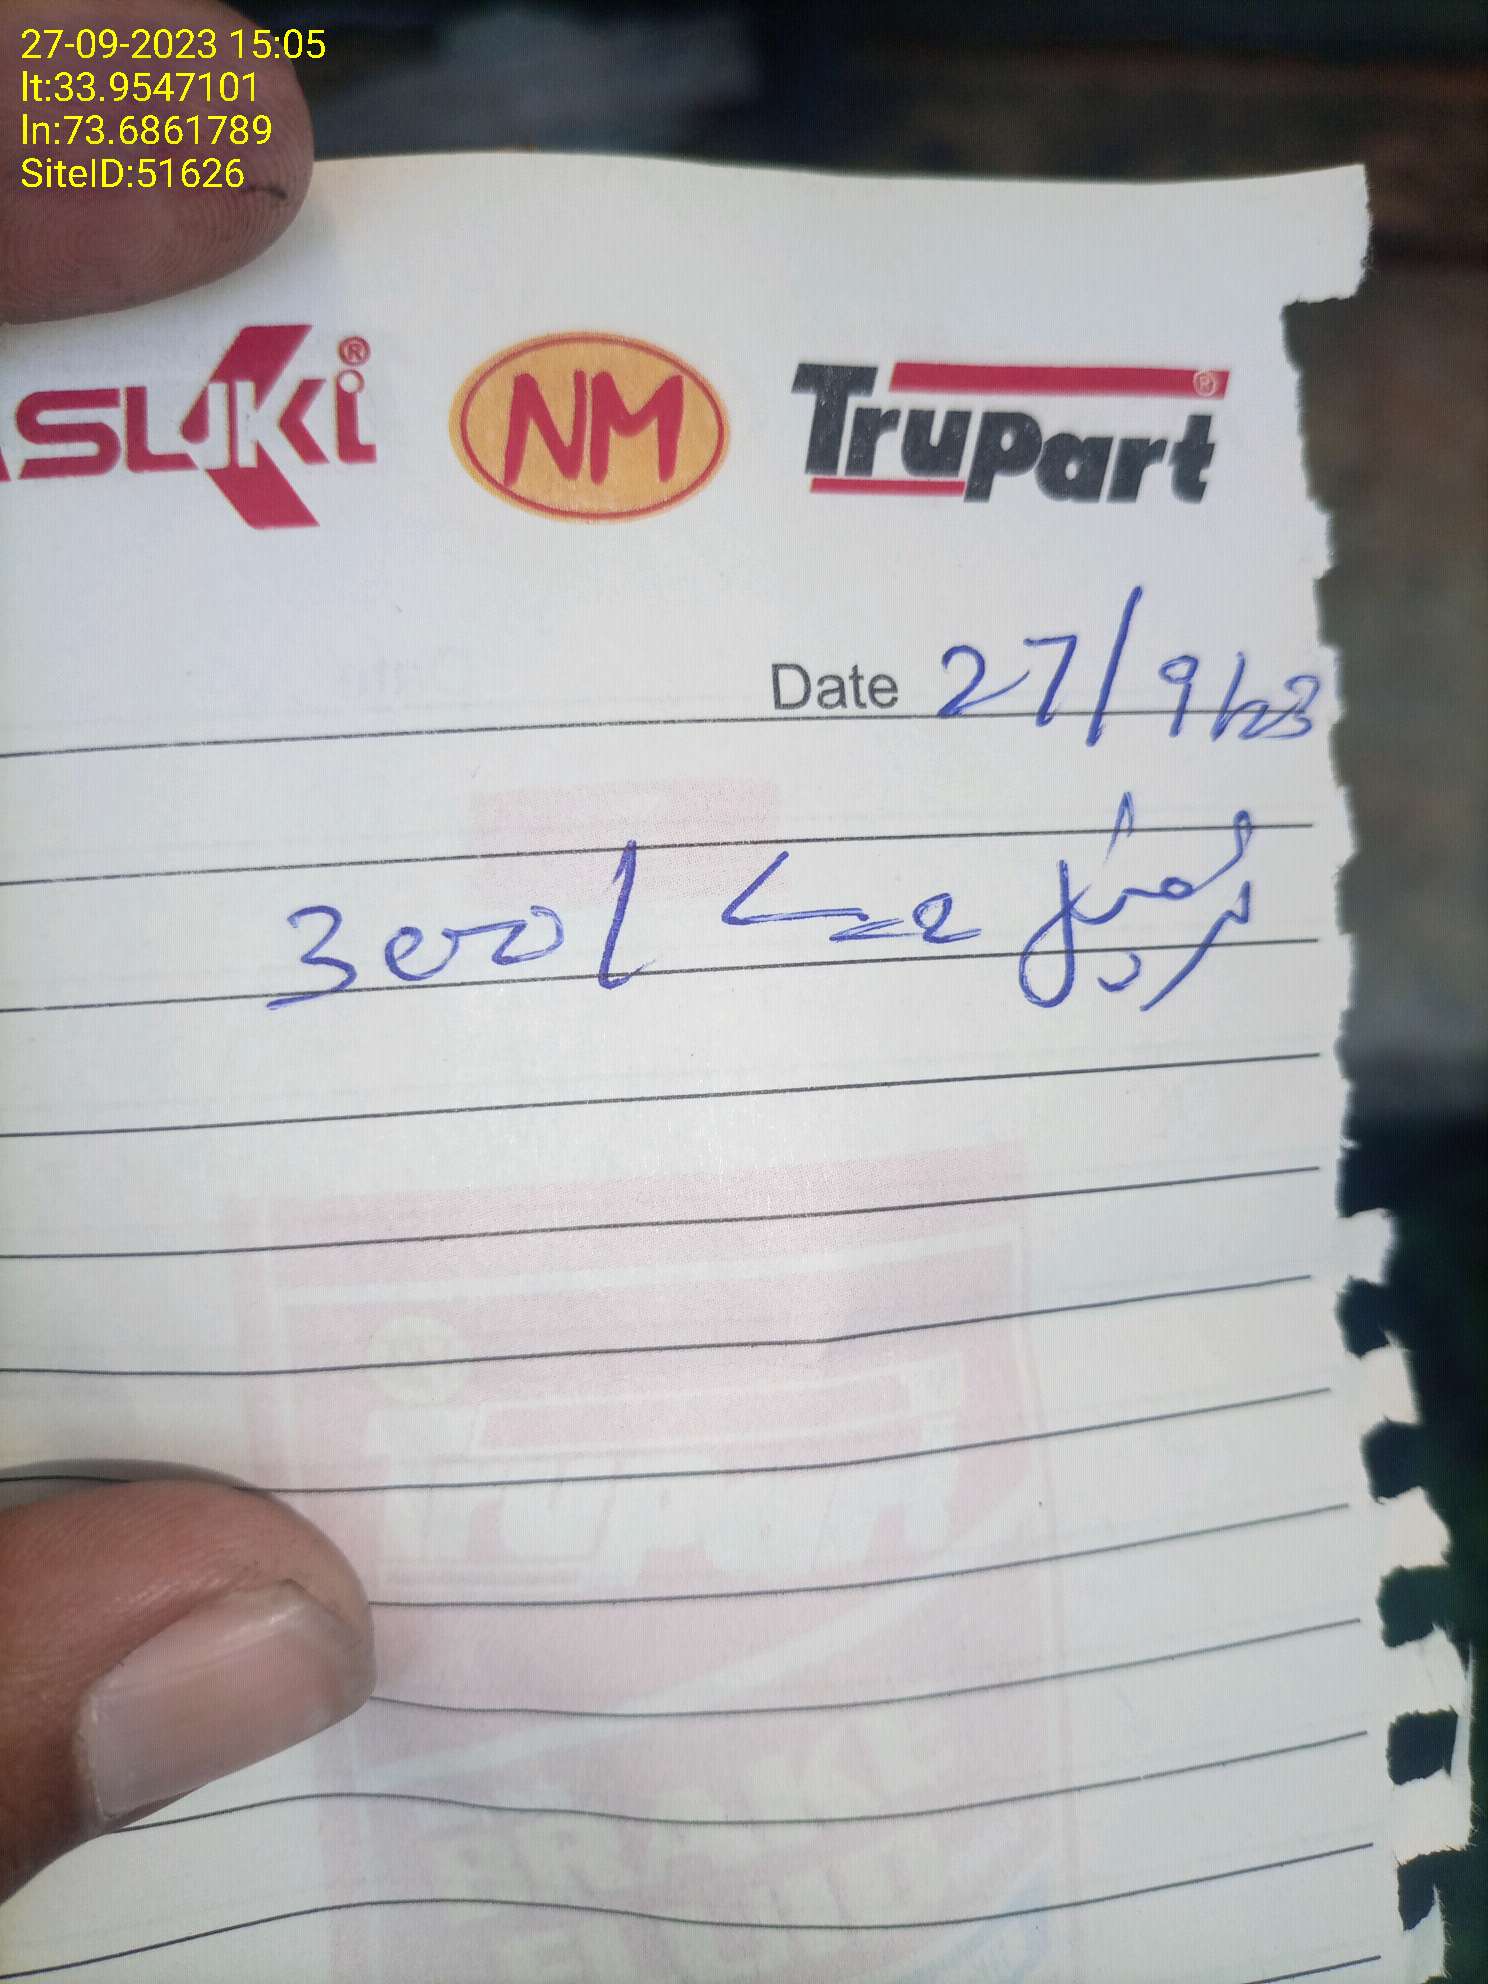 27-09-2023 15:05
lt:33.9547101
ln:73.6861789
SiteID:51626
ASUKI® NM Trupart®
Date 27/9/23
3000/
Trupart
BRAKE
FLUID